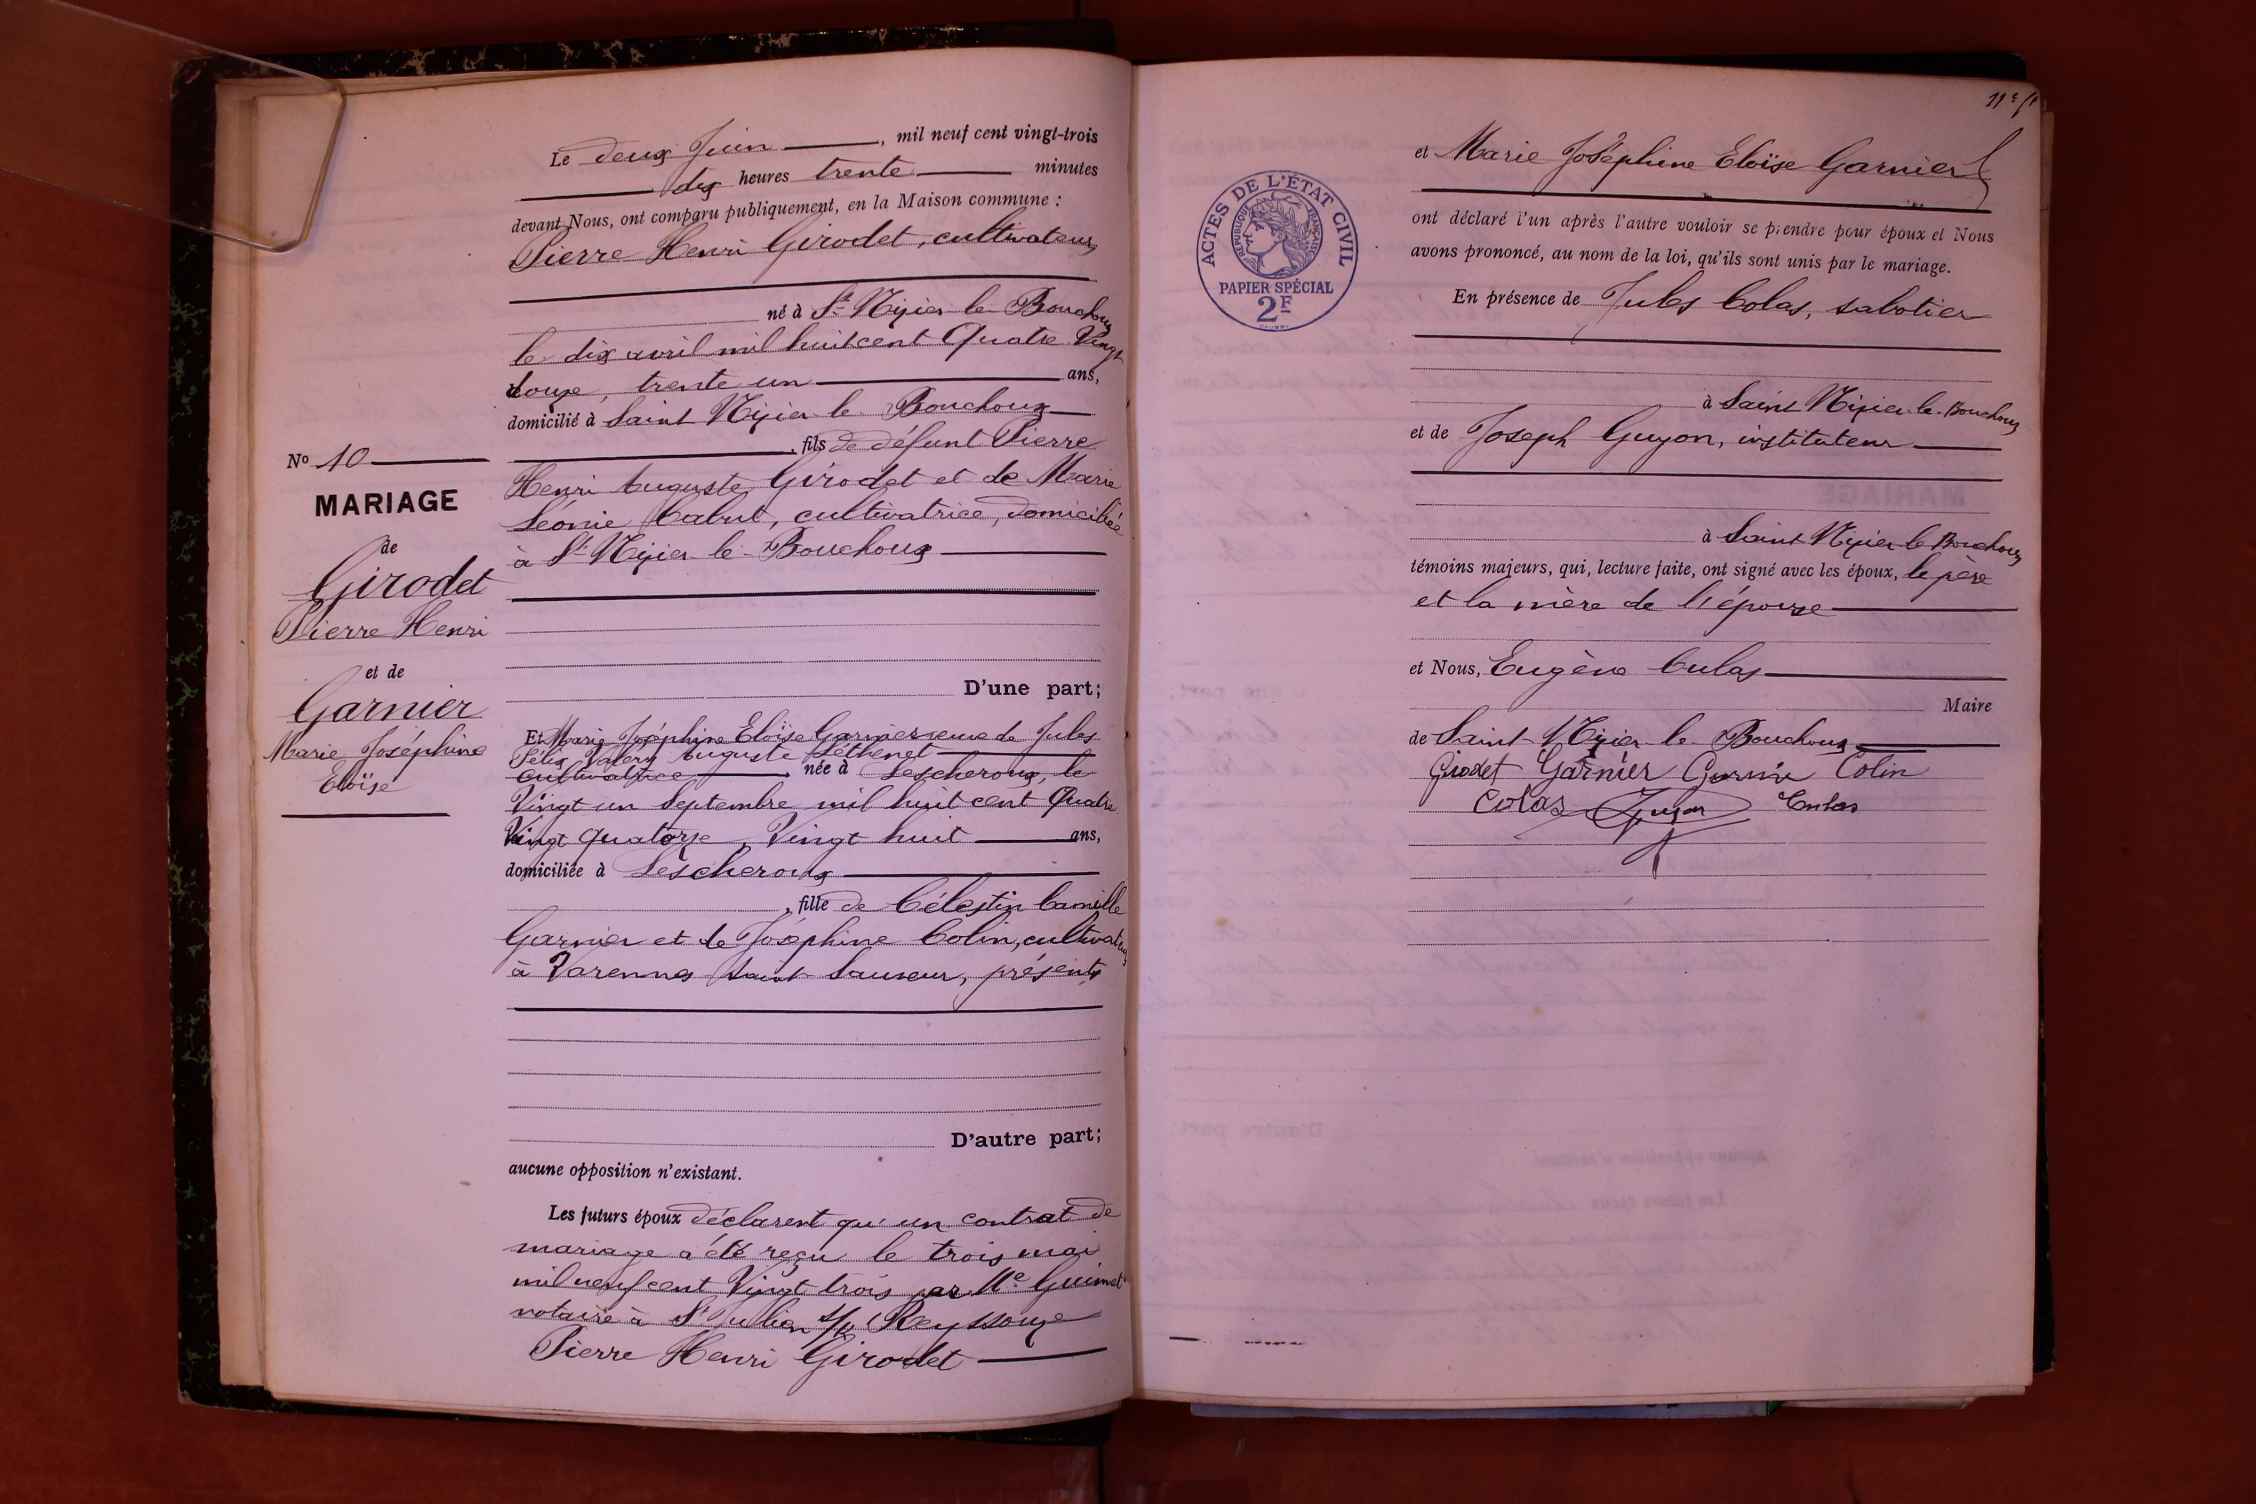 Le deux Juin, mil neuf cent vingt-trois
dix heures trente minutes
devant Nous, ont comparu publiquement, en la Maison commune :
Pierre Henri Girodet, cultivateur,
né à St Nizier le Bouchoux
le dix avril mil huit cent Quatre Vingt
douze, trente un ans,
domicilié à Saint Nizier le Bouchoux
, fils de défunt Pierre
Henri Auguste Girodet et de Marie
Léonie Cabut, cultivatrice, domiciliée
à St Nizier le Bouchoux
D'une part;
Et Marie Joséphine Eloïse Garnier veuve de Jules
Félix Valéry Auguste
cultivatrice, née à Lescheroux, le
Vingt un Septembre mil huit cent Quatre
Vingt quatorze, Vingt huit ans,
domiciliée à Lescheroux
, fille de Célestin Camille
Garnier et de Joséphine Colin, cultivateurs
à Varennes Saint Sauveur, présents
D'autre part;
aucune opposition n'existant.
Les futurs époux déclarent qu'un contrat de
mariage a été reçu le trois mai
mil neuf cent Vingt trois par Me Guimet
notaire à St Julien s/ Reyssouze
Pierre Henri Girodet
No 10
MARIAGE
de
Girodet
Pierre Henri
et de
Garnier
Marie Joséphine
Eloïse
11e f
ACTES DE L'ÉTAT CIVIL
RÉPUBLIQUE FRANÇAISE
PAPIER SPÉCIAL
2F
et Marie Joséphine Eloïse Garnier
ont déclaré l'un après l'autre vouloir se prendre pour époux et Nous
avons prononcé, au nom de la loi, qu'ils sont unis par le mariage.
En présence de Jules Colas, sabotier
à Saint Nizier le Bouchoux
et de Joseph Guyon, instituteur
à Saint Nizier le Bouchoux
témoins majeurs, qui, lecture faite, ont signé avec les époux, le père
et la mère de l'épouse
et Nous, Eugène Culas
Maire
de Saint Nizier le Bouchoux
Girodet Garnier Garnier Colin
Colas Guyon Culas